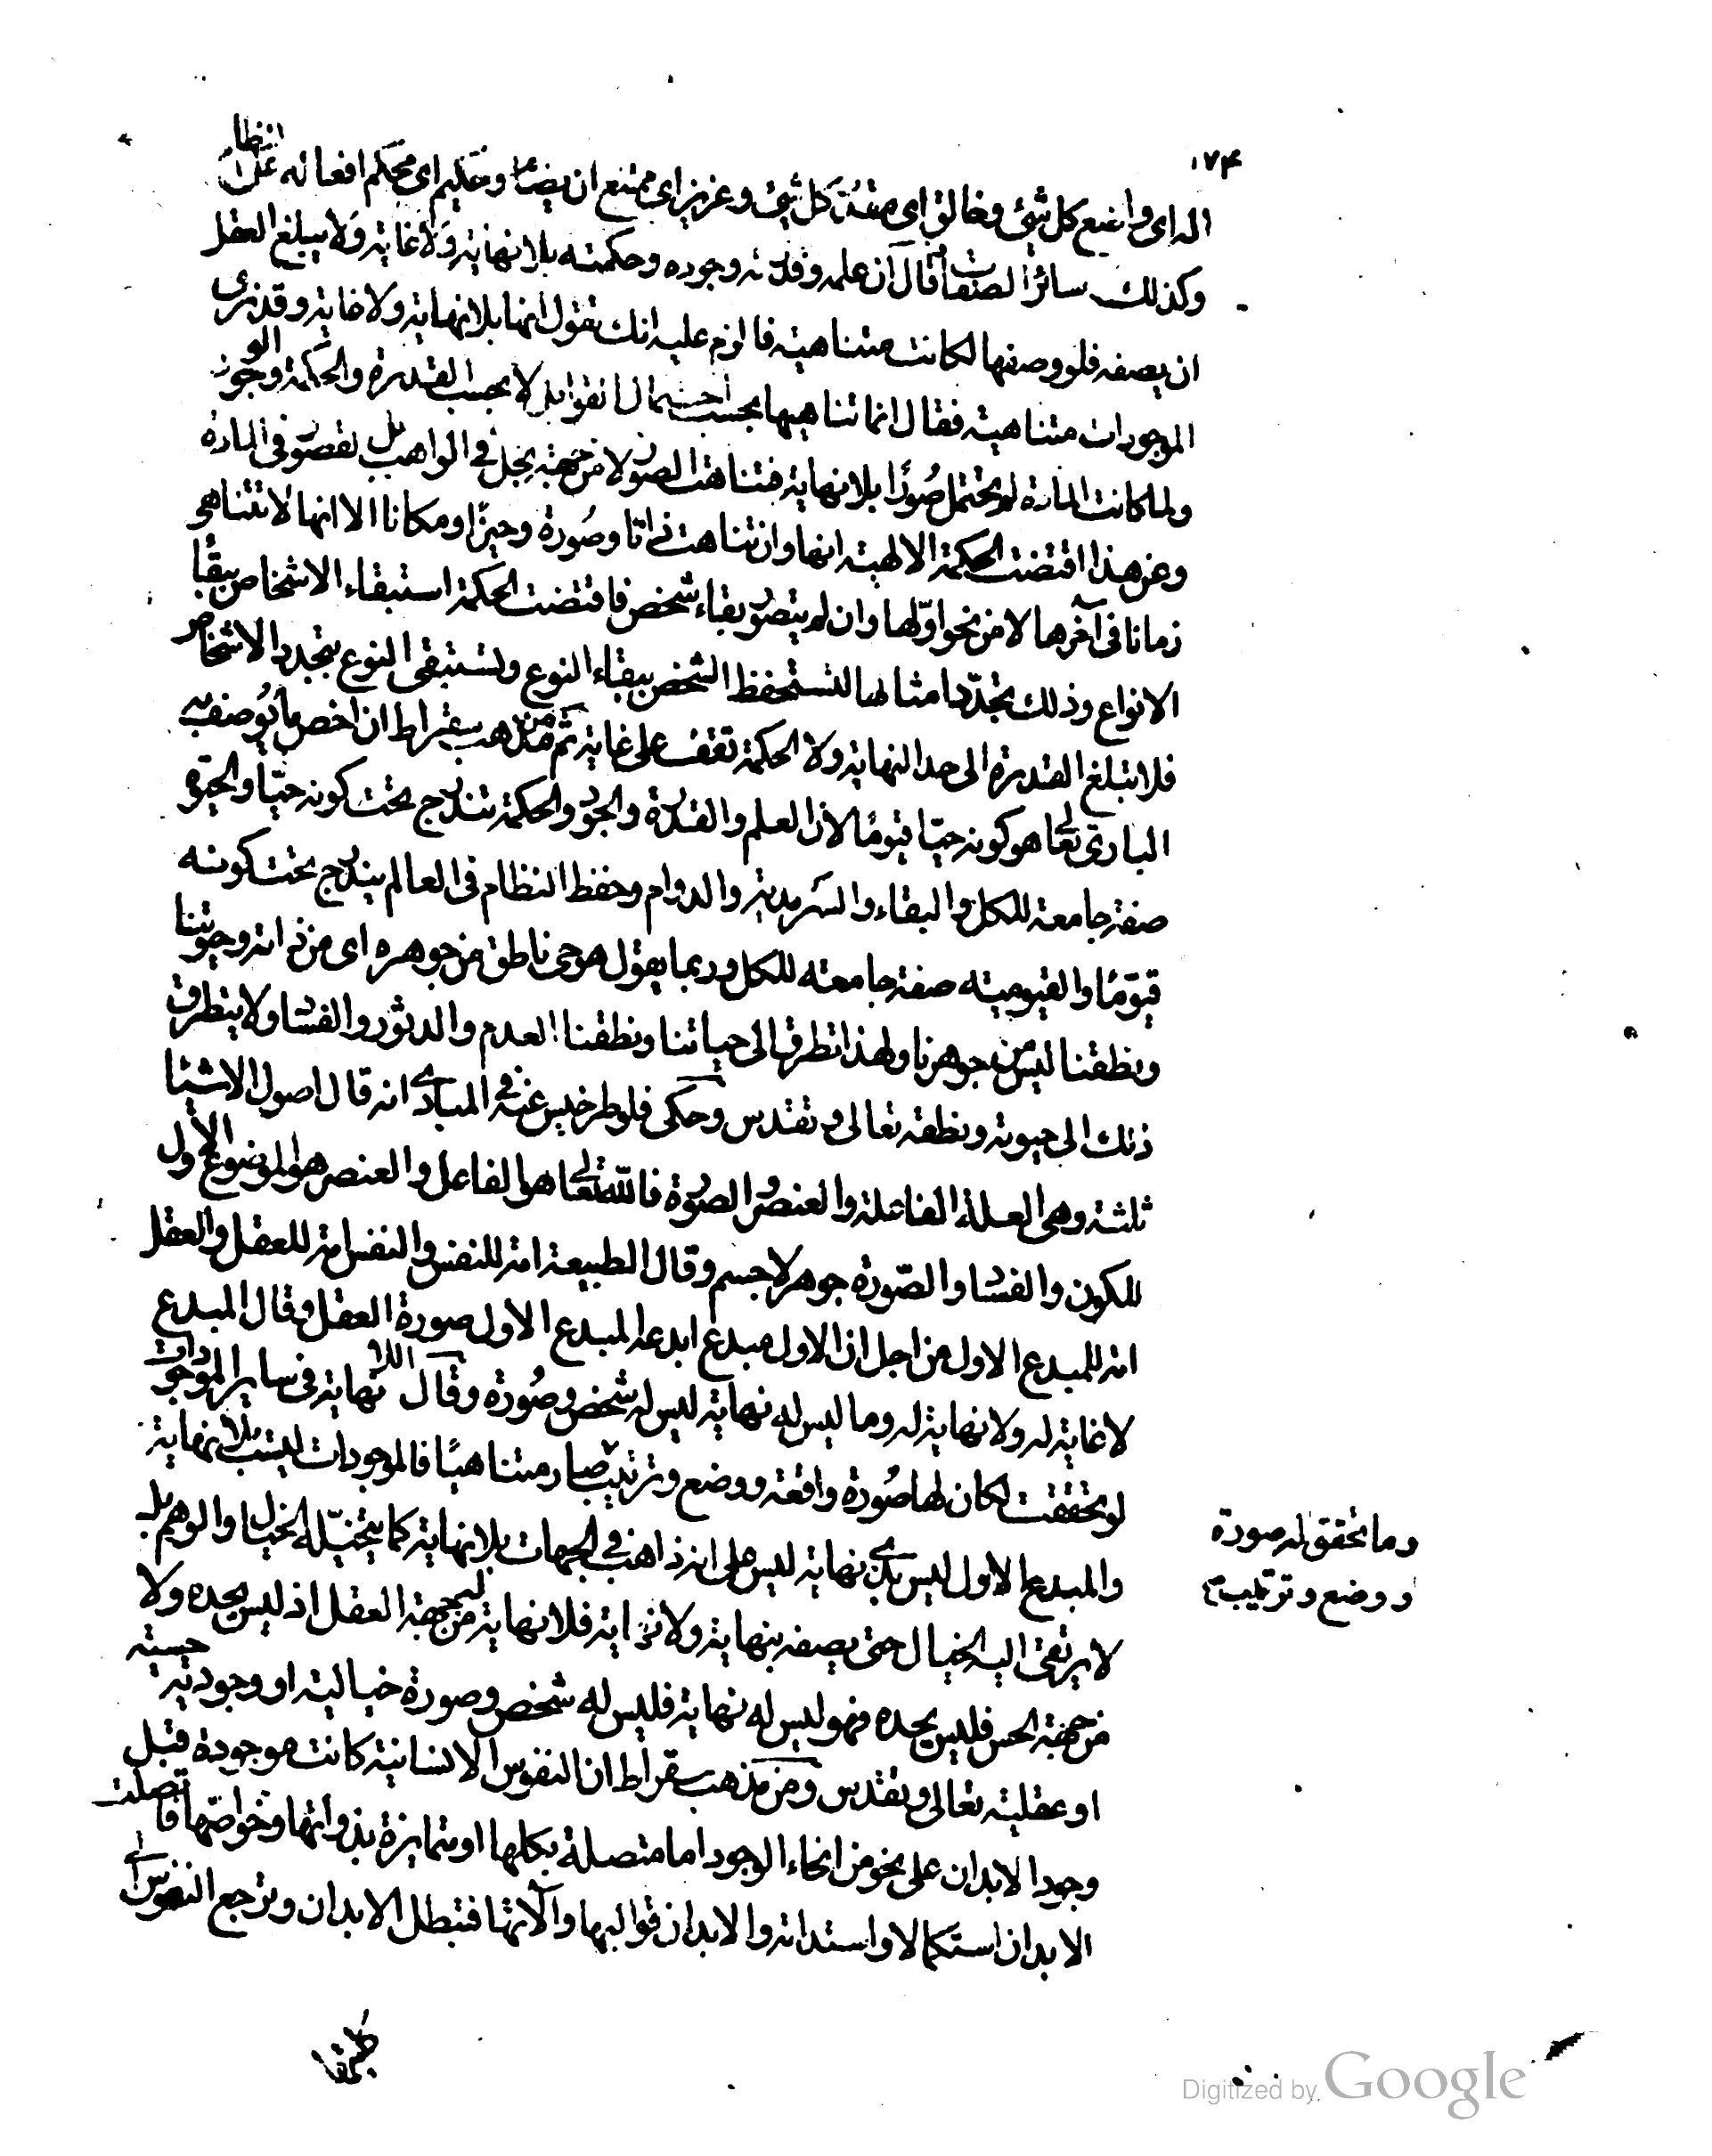 ١٧٤
اله اى واضع كل شئ وخالق اى مقدر كل شئ وعزيز اى ممتنع ان يضام وحكيم اى محكم افعاله على النظام
وكذلك سائر الصفات وقال ان علمه وقدرته وجوده وحكمته بلا نهاية ولا غاية ولا يبلغ العقل
ان يصفه فلو وصفها لكانت متناهية فالزم عليه انك تقول انها بلا نهاية ولا غاية وقد نرى
الموجودات متناهية فقال انما تناهيها بحسب احتمال القوابل لا بحسب القدرة والحكمة والجود
ولما كانت المادة لم يحتمل صورا بلا نهاية فتناهت الصور لا من جهة بخل فى الواهب بل لقصور فى المادة
وعن هذا اقتضت الحكمة الالهية انها وان تناهت ذاتا وصورة وحيزا ومكانا الا انها لا تتناهى
زمانا فى آخرها لا من نحو اولها وان لم يتصور بقاء شخص فاقتضت الحكمة استبقاء الاشخاص ببقاء
الانواع وذلك بتجدد امثالها لتستحفظ الشخص ببقاء النوع وتستبقى النوع بتجدد الاشخاص
فلا تبلغ القدرة الى حد النهاية ولا الحكمة تقف على غاية ثم من مذهب سقراط ان اخص ما يوصف به
البارى تعالى هو كونه حيا قيوما لان العلم والقدرة والجود والحكمة تندرج تحت كونه حيا والحيوة
صفة جامعة للكل والبقاء والسرمدية والدوام وحفظ النظام فى العالم يندرج تحت كونه
قيوما والقيومية صفة جامعة للكل وربما يقول هو حى ناطق من جوهره اى من ذاته وحيوتنا
ونطقنا ليس من جوهرنا ولهذا تطرق الى حياتنا ونطقنا العدم والدثور والفساد ولا يتطرق
ذلك الى حيوته ونطقه تعالى وتقدس وحكى فلوطرخيس عنه فى المبادى انه قال اصول الاشياء
ثلثة وهى العلة الفاعلة والعنصر والصورة فالله تعالى هو الفاعل والعنصر هو الموضوع الاول
للكون والفساد والصورة جوهر لا جسم وقال الطبيعة امة للنفس والنفس امة للعقل والعقل
امة للمبدع الاول من اجل ان الاول مبدع ابدعه المبدع الاول صورة العقل وقال المبدع
لا غاية له ولا نهاية له وما ليس له نهاية ليس له شخص وصورة وقال اللا نهاية فى ساير الموجودات
لو تحققت لكان لها صورة واقعة ووضع وترتيب صار متناهيا فالموجودات ليست بلا نهاية
وما تحقق له صورة
ووضع وترتيب
والمبدع الاول ليس بذى نهاية ليس على انه ذاهب فى الجهات بلا نهاية كما يتخيله الخيال والوهم بل
لا يرتقى اليه الخيال حتى يصفه بنهاية ولا نهاية فلا نهاية من جهة العقل اذ ليس يحده ولا
من جهة الحس فليس يحده فهو ليس له نهاية فليس له شخص وصورة خيالية او وجودية حسية
او عقلية تعالى وتقدس ومن مذهب سقراط ان النفوس الانسانية كانت موجودة قبل
وجود الابدان على نحو من انحاء الوجود اما متصلة بكلها او متمايزة بذواتها وخواصها فاتصلت
الابدان استكمالا واستدامة والابدان قوالبها وآلاتها فتبطل الابدان وترجع النفوس الى
كليتها
Digitized by Google